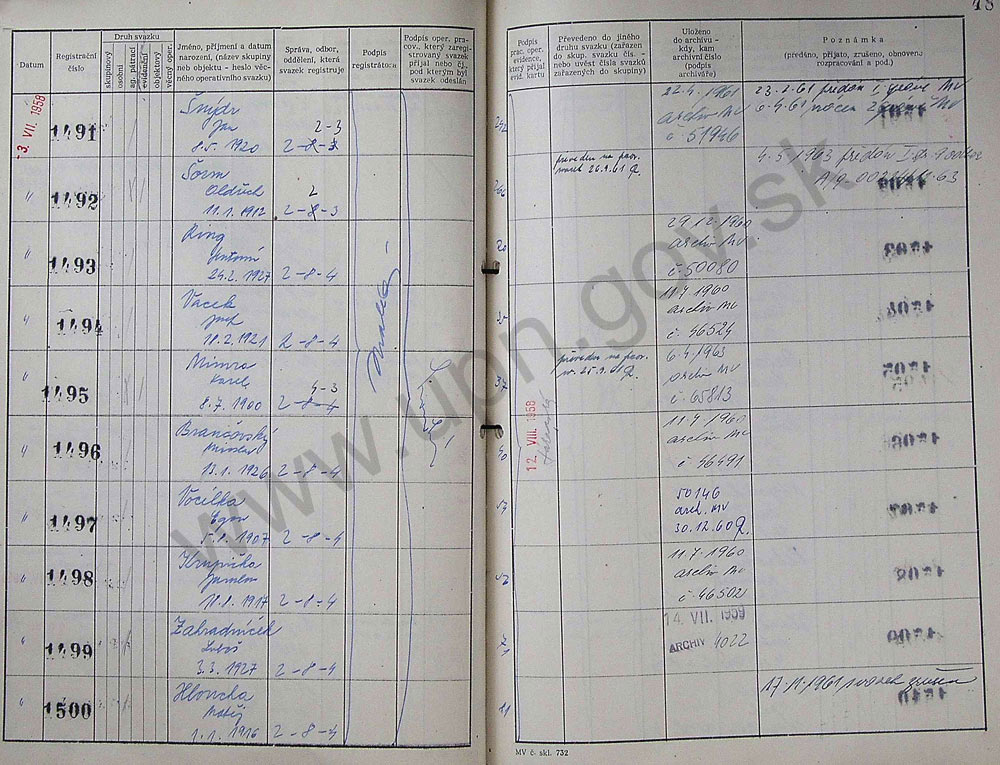 48
Datum
Registrační číslo
Druh svazku
skupinový
osobní
ag. pátrací
evidenční
objektový
věcný oper.
Jméno, příjmení a datum
narození, (název skupiny
neb objektu - heslo věc-
ného operativního svazku)
Správa, odbor,
oddělení, která
svazek registruje
Podpis
registrátora
Podpis oper. pra-
cov., který zareg-
istrovaný svazek
přijal nebo čj.
pod kterým byl
svazek odeslán
Podpis
prac. oper.
evidence,
který přijal
evid. kartu
Převedeno do jiného
druhu svazku (zařazen
do skup. svazku čís. -
nebo uvést čísla svazků
zařazených do skupiny)
Uloženo
do archivu -
kdy, kam
archivní číslo
(podpis
archiváře)
Poznámka
(předáno, přijato, zrušeno, obnoveno
rozpracování a pod.)
-3. VII. 1958
1491
Šnýdr
Jan
8.5. 1920
2-3
2-8-3
22.4. 1961
archiv MV
č. 51946
23.2.61 předán
6.4.61
1492
Šorm
Oldřich
11.1. 1912
2
2-8-3
26.9.61
4.5 1963 předán
1493
Ring
Antonín
24.2. 1927
2-8-4
29.12.1960
archiv MV
č. 50080
1494
Vacek
Josef
18.2. 1921
2-8-4
11.7. 1960
archiv MV
č. 46524
1495
Mimra
Karel
8.7. 1900
4-3
2-8-4
25.9.61
6.4.1963
archiv MV
č. 65813
1496
Brančovský
Miroslav
13.1. 1926
2-8-4
12. VIII. 1958
11.7. 1960
archiv MV
č. 46491
1497
Vocílka
Egon
5.1. 1907
2-8-4
50146
arch. MV
30.12.60
1498
Krupička
Jaromír
18.8. 1917
2-8-4
11.7. 1960
archiv MV
č. 46502
1499
Zahradníček
Luboš
3.3. 1927
2-8-4
14. VII. 1959
ARCHIV 4022
1500
Hloucha
Matěj
1.1. 1916
2-8-4
17.11.1961 svazek zrušen
MV č. skl. 732
www.upn.gov.sk